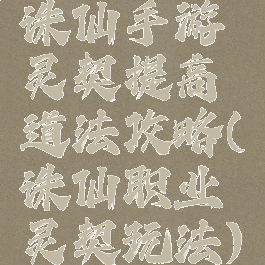 诛仙手游
灵契提高
道法攻略(
诛仙职业
灵契玩法)